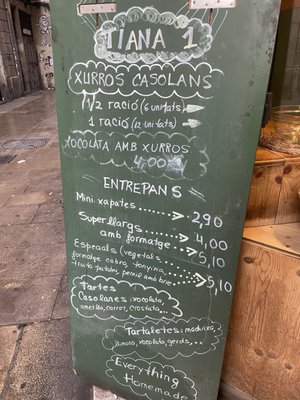 TIANA 1
XURROS CASOLANS
1/2 ració (6 unitats)
1 ració (12 unitats)
XOCOLATA AMB XURROS
4,00
ENTREPANS
Mini xapates........ 2,90
Super llargs........ 4,00
amb formatge........ 5,10
Especials (vegetals,
formatge cabra, tonyina,
truita patates, pernil amb brie)
5,10
Tartes
Casolanes: xocolata,
ametlla, carrot, crostata...
Tartaletes: maduixa,
llimona, xocolata, gerds, ...
Everything
Homemade